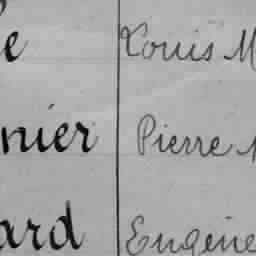 e Louis M
nier Pierre
ard Eugène